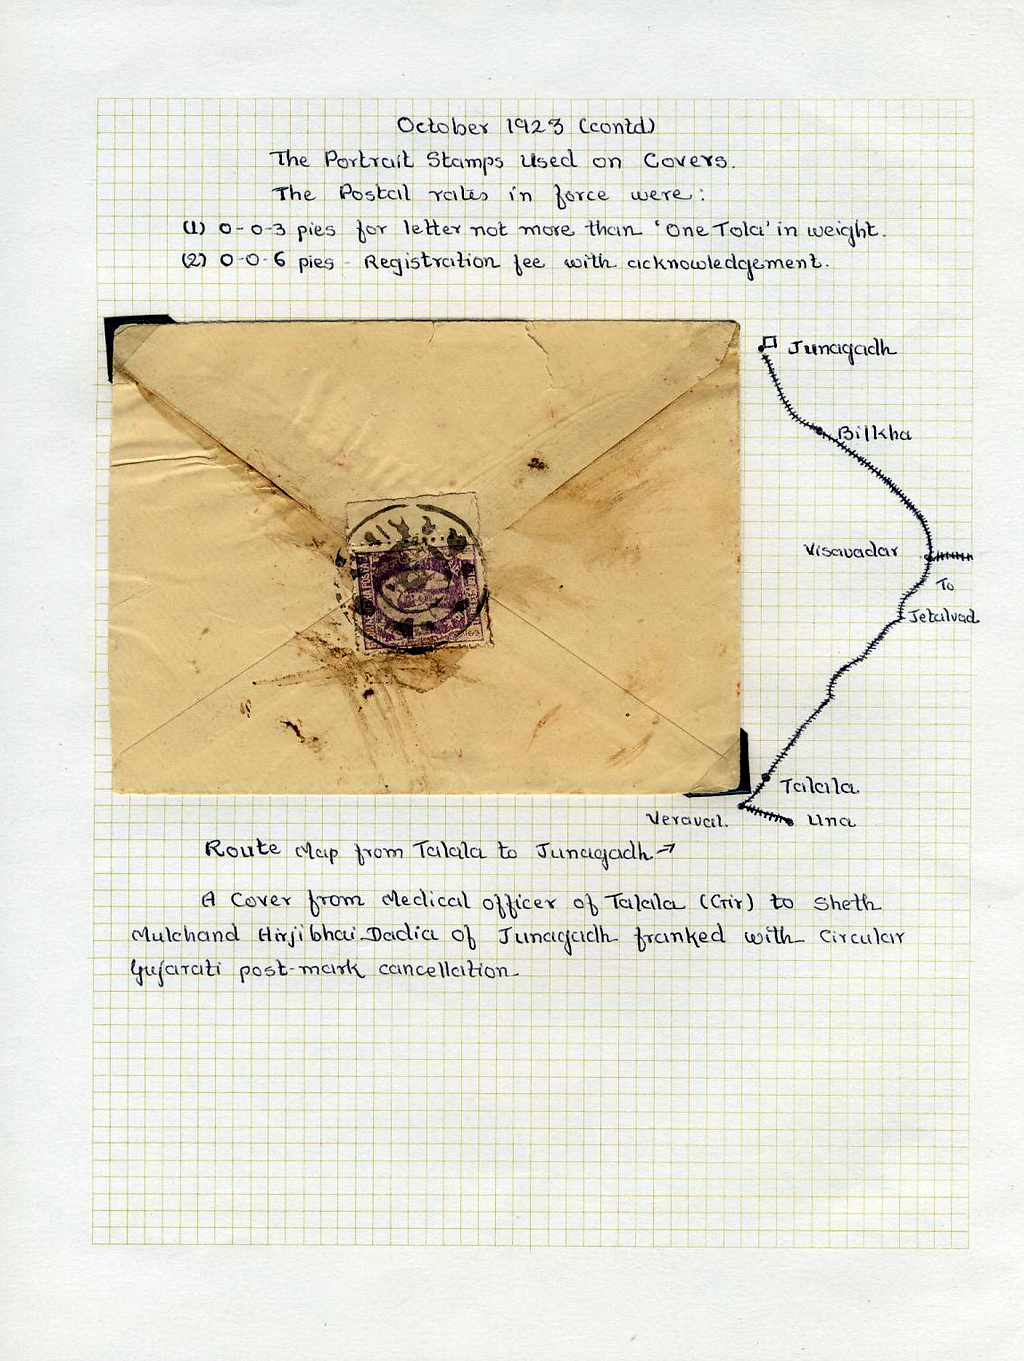 October 1923 (contd)
The Portrait Stamps Used on Covers.
The Postal rates in force were:
(1) 0-0-3 pies for letter not more than 'One Tola' in weight.
(2) 0-0-6 pies - Registration fee with acknowledgement.
Junagadh
Bilkha
Visavadar
To
Jetalvad
Talala
Veraval.
Una
Route Map from Talala to Junagadh →
A Cover from Medical officer of Talala (Gir) to Sheth
Mulchand Hirjibhai Dadia of Junagadh franked with Circular
Gujarati post-mark cancellation.